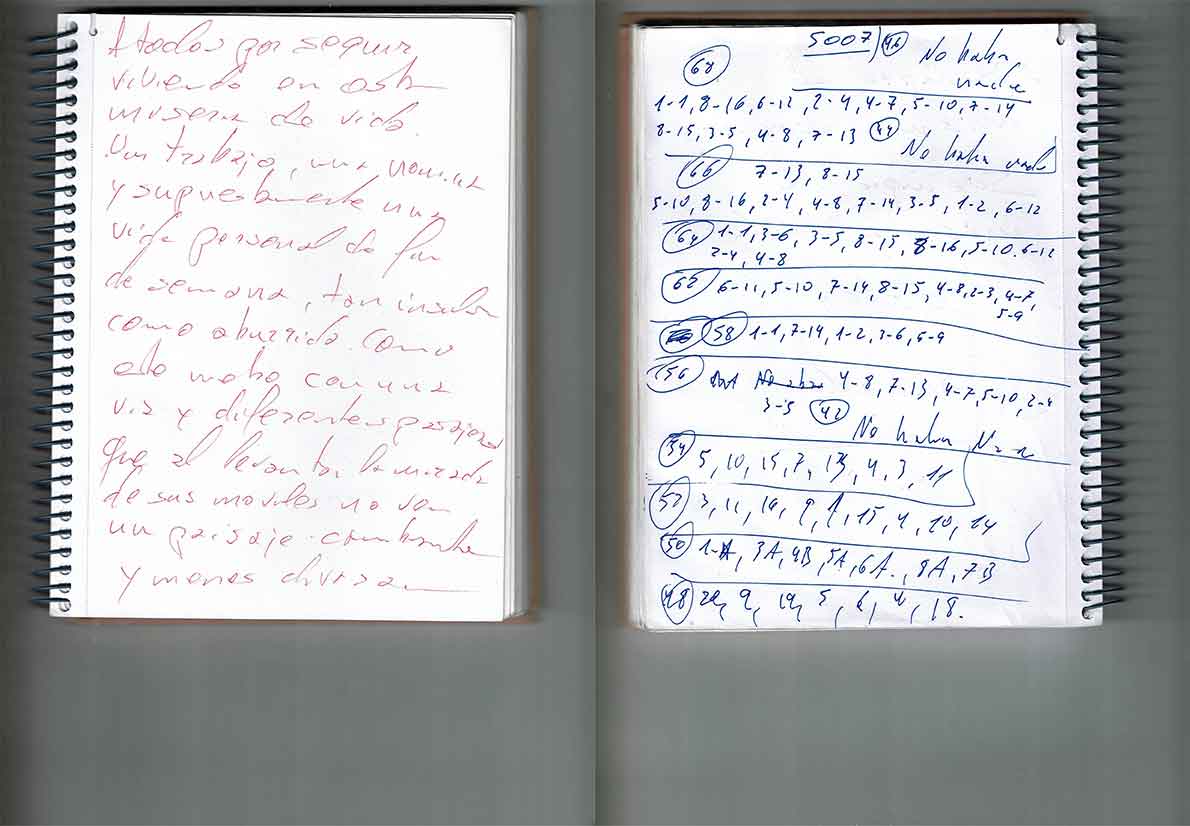 A todos por seguir
viviendo en esta
miseria de vida.
Un trabajo, una nomina
y supuestamente una
vida personal de fin
de semana, tan
como aburrida. Como
este metro con una
via y diferentes pasajeros
que al levantar la mirada
de sus moviles no ven
un paisaje cambiante
y menos
5007) 46 No habia
nadie
68
1-1, 8-16, 6-12, 2-4, 4-7, 5-10, 7-14
8-15, 3-5, 4-8, 7-13 44
No habia nadie
66 7-13, 8-15
5-10, 8-16, 2-4, 4-8, 7-14, 3-5, 1-2, 6-12
64 1-1, 3-6, 3-5, 8-15, 8-16, 5-10, 6-12
2-4, 4-8
6-11, 5-10, 7-14, 8-15, 4-8, 2-3, 4-7,
5-9
58 1-1, 7-14, 1-2, 3-6, 5-9
56 4-8, 7-13, 4-7, 5-10, 2-4
3-5 42
No habia
54 5, 10, 15, 7, 13, 4, 3, 11
52 3, 11, 16, 9, 1, 15, 4, 10, 14
50 1-A, 3A, 4B, 5A, 6A, 8A, 7B
48 9, 5, 18.